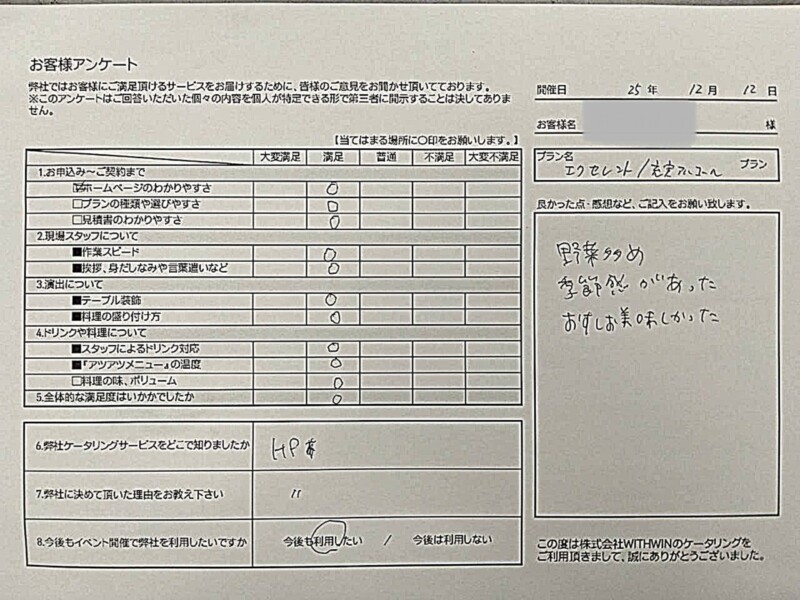 お客様アンケート
弊社ではお客様にご満足頂けるサービスをお届けするために、皆様のご意見をお聞かせ頂いてております。
※このアンケートはご回答いただいた個々の内容を個人が特定できる形で第三者に開示することは決してありま
せん。
【当てはまる場所に〇印をお願いします。】
大変満足 満足 普通 不満足 大変不満足
1.お申込み～ご契約まで
☑ホームページのわかりやすさ ○
□プランの種類や選びやすさ ○
□見積書のわかりやすさ ○
2.現場スタッフについて
■作業スピード ○
■挨拶、身だしなみや言葉遣いなど ○
3.演出について
■テーブル装飾 ○
■料理の盛り付け方 ○
4.ドリンクや料理について
■スタッフによるドリンク対応 ○
■『アツアツメニュー』の温度 ○
□料理の味、ボリューム ○
5.全体的な満足度はいかかでしたか ○
6.弊社ケータリングサービスをどこで知りましたか HP
7.弊社に決めて頂いた理由をお教え下さい 〃
8.今後もイベント開催で弊社を利用したいですか 今後も利用したい / 今後は利用しない
開催日 25 年 12 月 12 日
お客様名 様
プラン名
エクセレント/充実アルコール プラン
良かった点・感想など、ご記入をお願い致します。
野菜多め
季節感があった
おすしお美味しかった
この度は株式会社WITHWINのケータリングを
ご利用頂きまして、誠にありがとうございました。